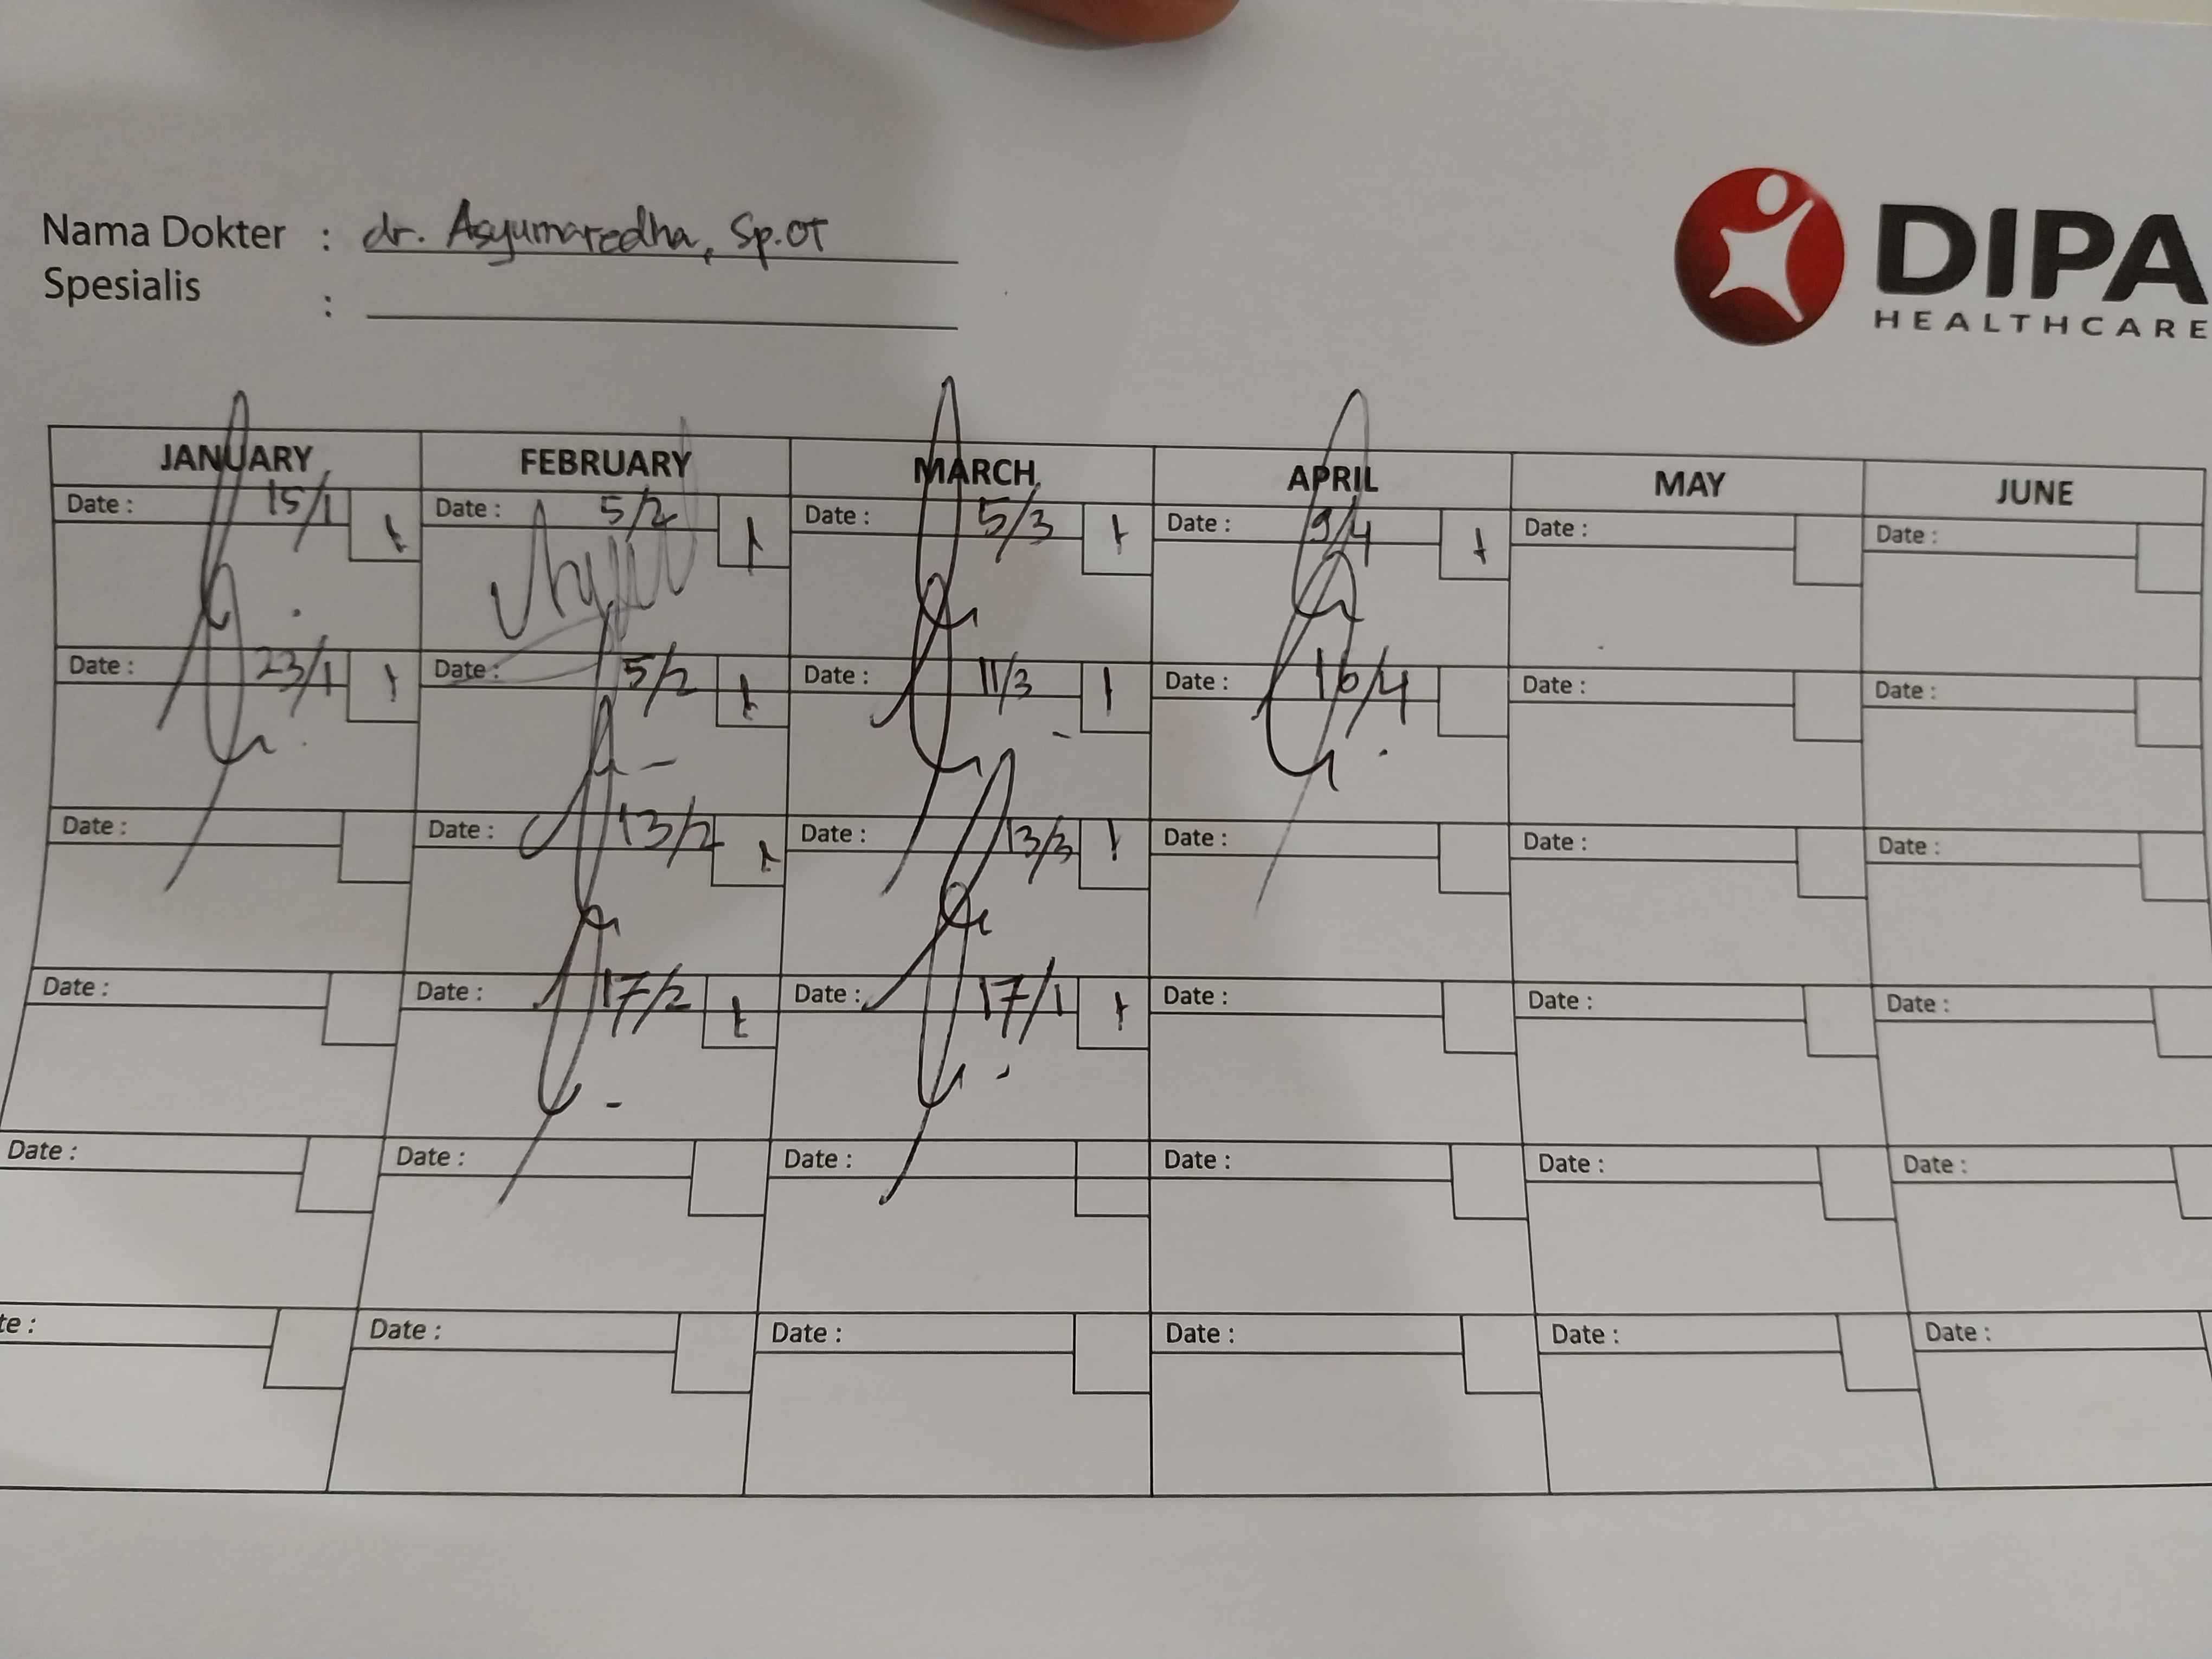 Nama Dokter : dr. Asyumaredha, Sp.OT
Spesialis :
DIPA
HEALTHCARE
JANUARY FEBRUARY MARCH APRIL MAY JUNE
Date : 15/1 Date : 5/2 Date : 5/3 Date : 9/4 Date : Date :
Date : 23/1 Date : 5/2 Date : 11/3 Date : 16/4 Date : Date :
Date : Date : 13/2 Date : 13/3 Date : Date : Date :
Date : Date : 17/2 Date : 17/1 Date : Date : Date :
Date : Date : Date : Date : Date : Date :
te : Date : Date : Date : Date : Date :